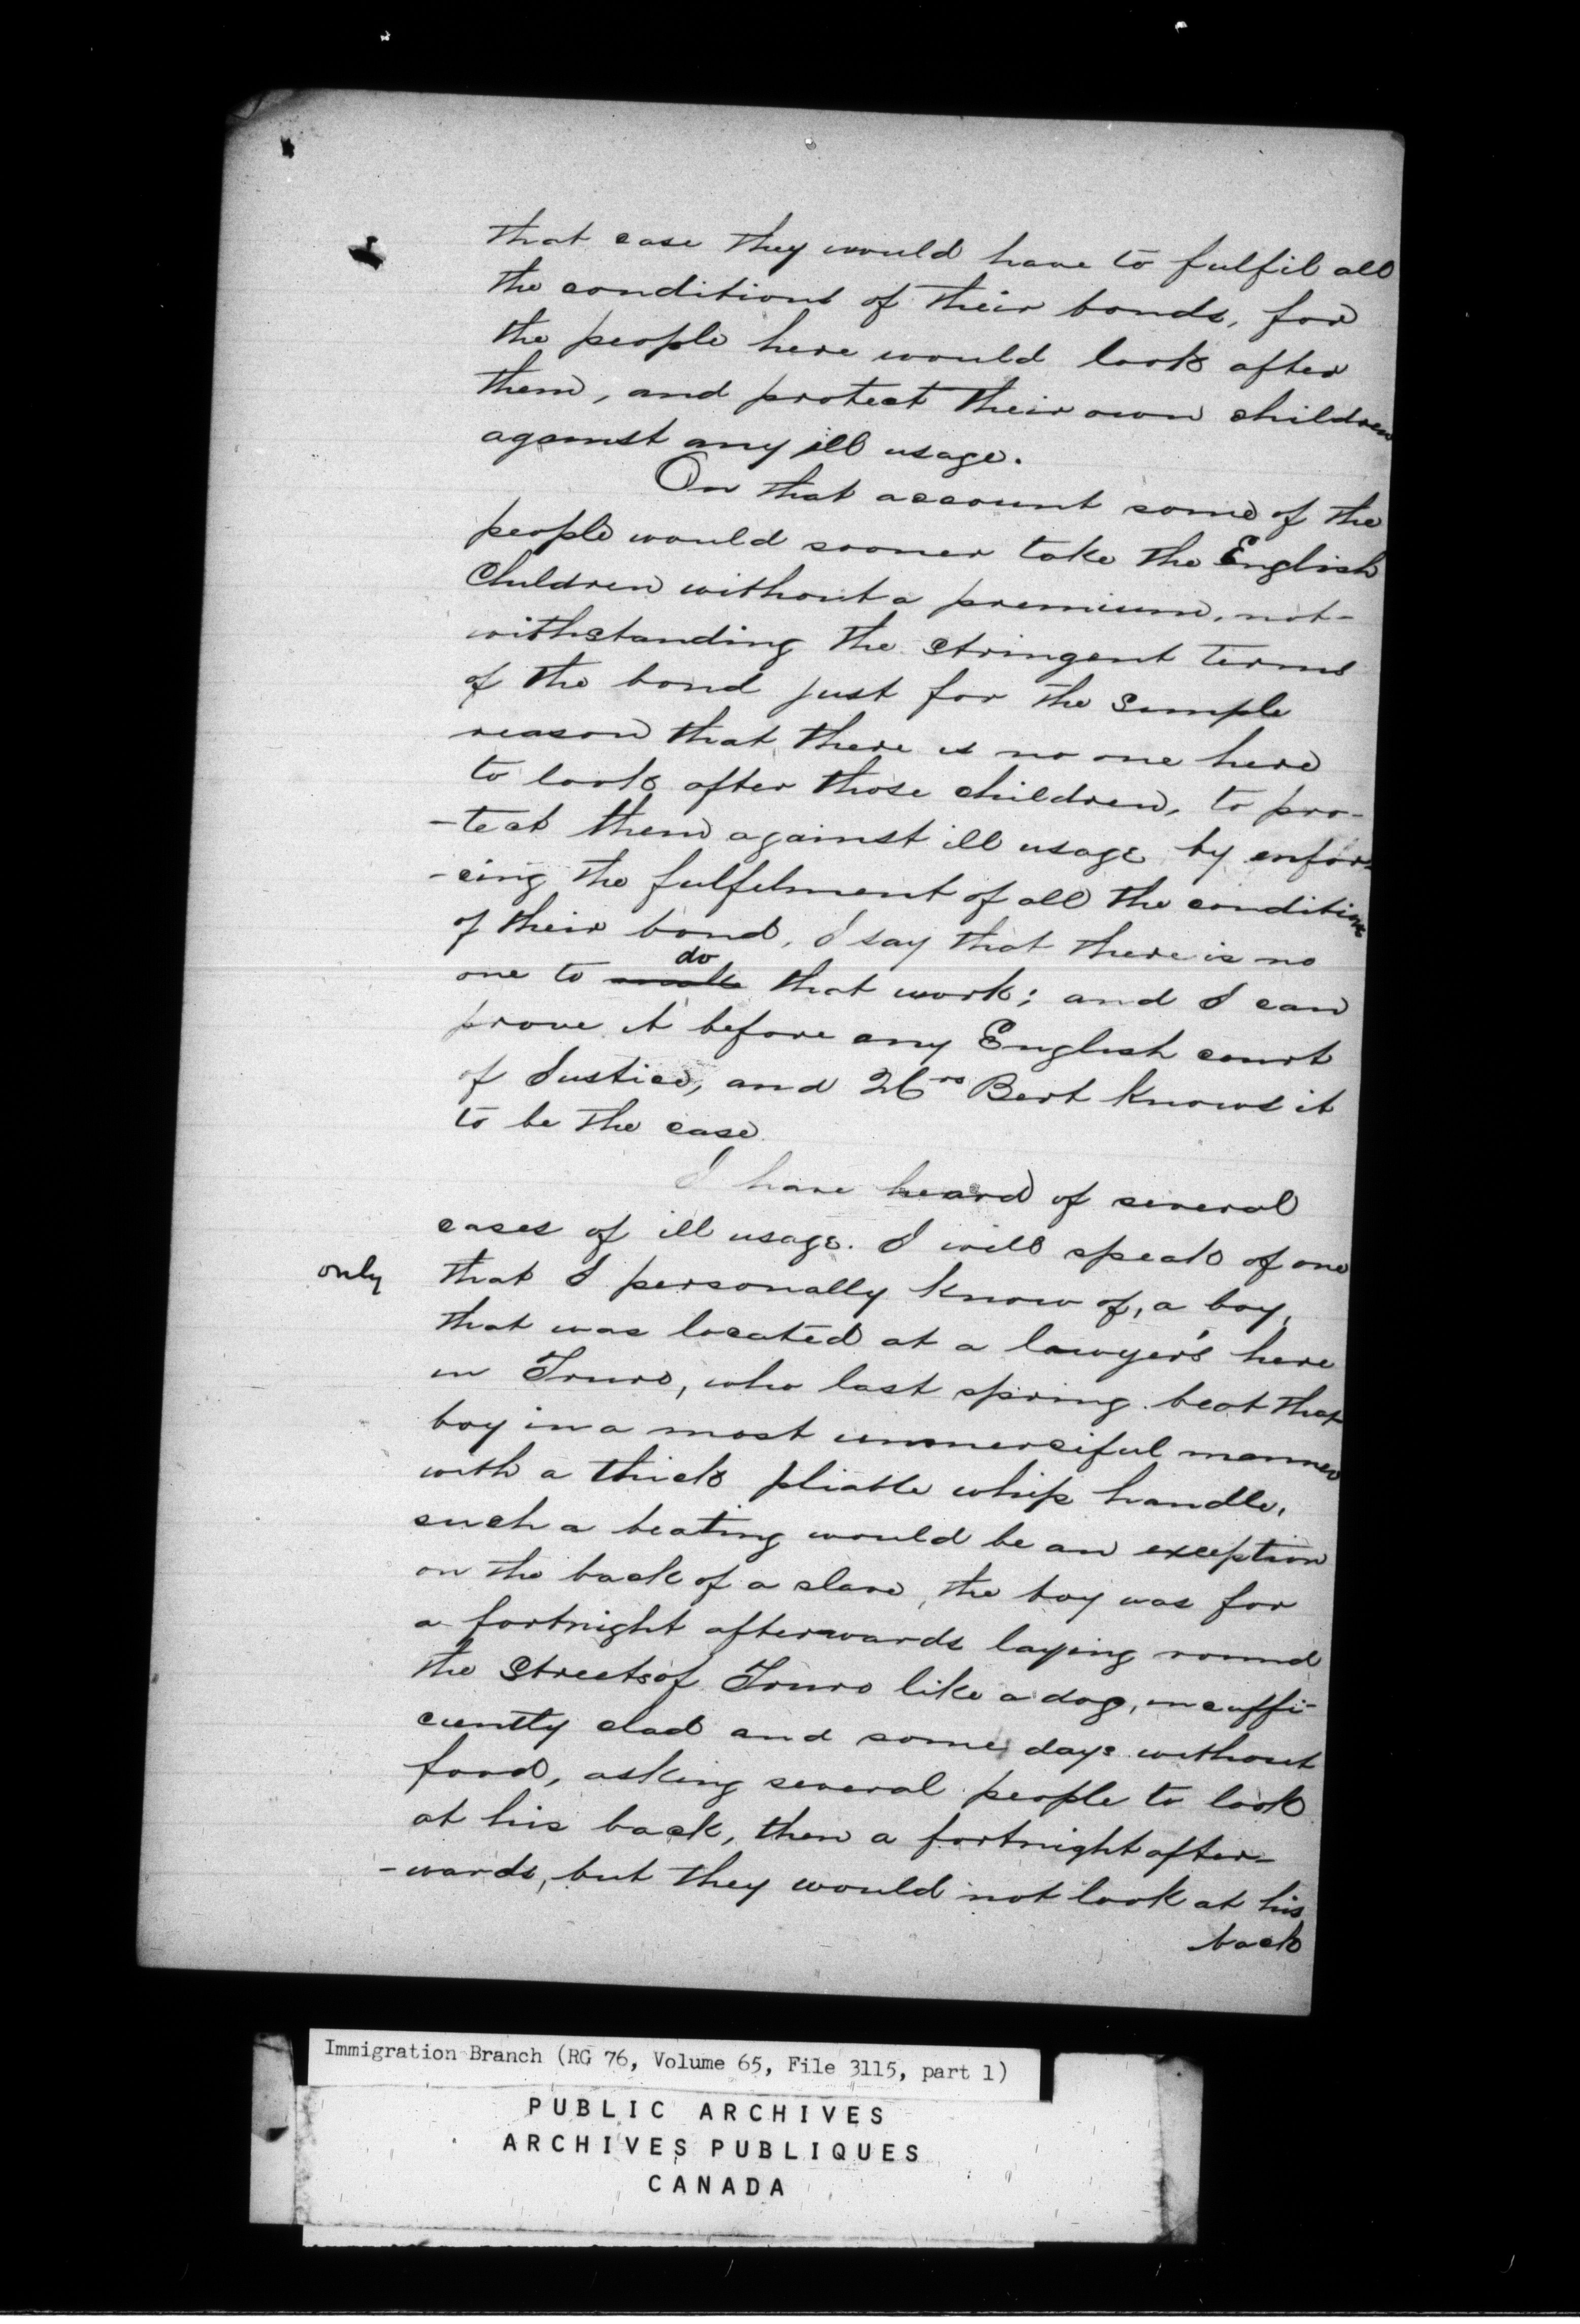 that case they would have to fulfil all
the conditions of their bonds, for
the people here would look after
them, and protect their own children
against any ill usage.
On that account some of the
people would sooner take the English
Children without a premium, not-
withstanding the stringent terms
of the bond just for the simple
reason that there is no one here
to look after those children, to pro-
-tect them against ill usage by enfor-
-cing the fulfilment of all the conditions
of their bond, I say that there is no
do
one to make that work; and I can
prove it before any English court
of Justice, and Mrs Bert knows it
to be the case
I have heard of several
cases of ill usage. I will speak of one
only that I personally know of, a boy,
that was located at a lawyer's here
in Truro, who last spring beat that
boy in a most unmerciful manner
with a thick pliable whip handle,
such a beating would be an exception
on the back of a slave, the boy was for
a fortnight afterwards laying round
the Streets of Truro like a dog, insuffi-
ciently clad and some days without
food, asking several people to look
at his back, then a fortnight after-
-wards, but they would not look at his
back
Immigration Branch (RG 76, Volume 65, File 3115, part 1)
PUBLIC ARCHIVES
ARCHIVES PUBLIQUES
CANADA